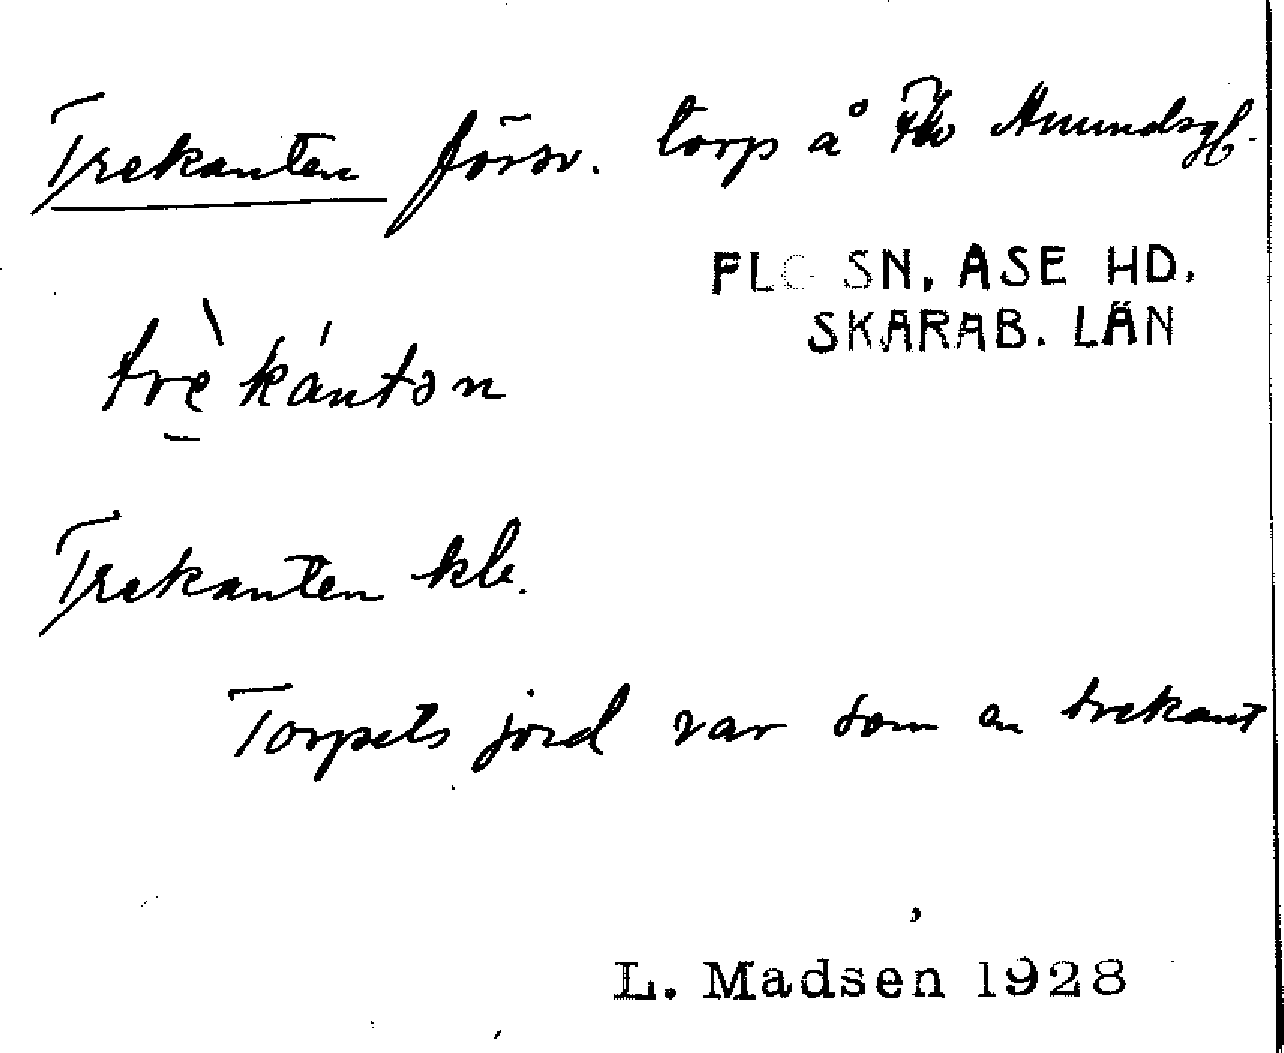 Trekanten försv. torp å Amundsgl.
FLO SN, ÅSE HD.
SKARAB. LÄN
trè kántən
Trekanten kb.
Torpets jord var som en trekant
L. Madsen 1928